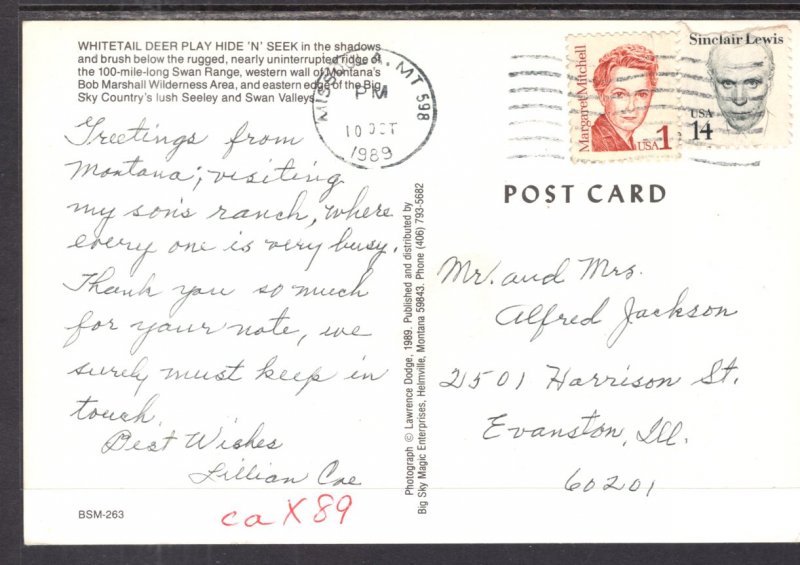 WHITETAIL DEER PLAY HIDE 'N' SEEK in the shadows
and brush below the rugged, nearly uninterrupted ridge of
the 100-mile-long Swan Range, western wall of Montana's
Bob Marshall Wilderness Area, and eastern edge of the Big
Sky Country's lush Seeley and Swan Valleys.
MISSOULA, MT 598
PM
10 OCT
1989
Margaret Mitchell
USA 1
Sinclair Lewis
USA
14
Greetings from
Montana; visiting
my son's ranch, where
every one is very busy.
Thank you so much
for your note, we
surely must keep in
touch.
Best Wishes
Lillian Coe
ca X 89
BSM-263
Photograph © Lawrence Dodge, 1989. Published and distributed by
Big Sky Magic Enterprises, Helmville, Montana 59843. Phone (406) 793-5682
POST CARD
Mr. and Mrs.
Alfred Jackson
2501 Harrison St.
Evanston, Ill.
60201